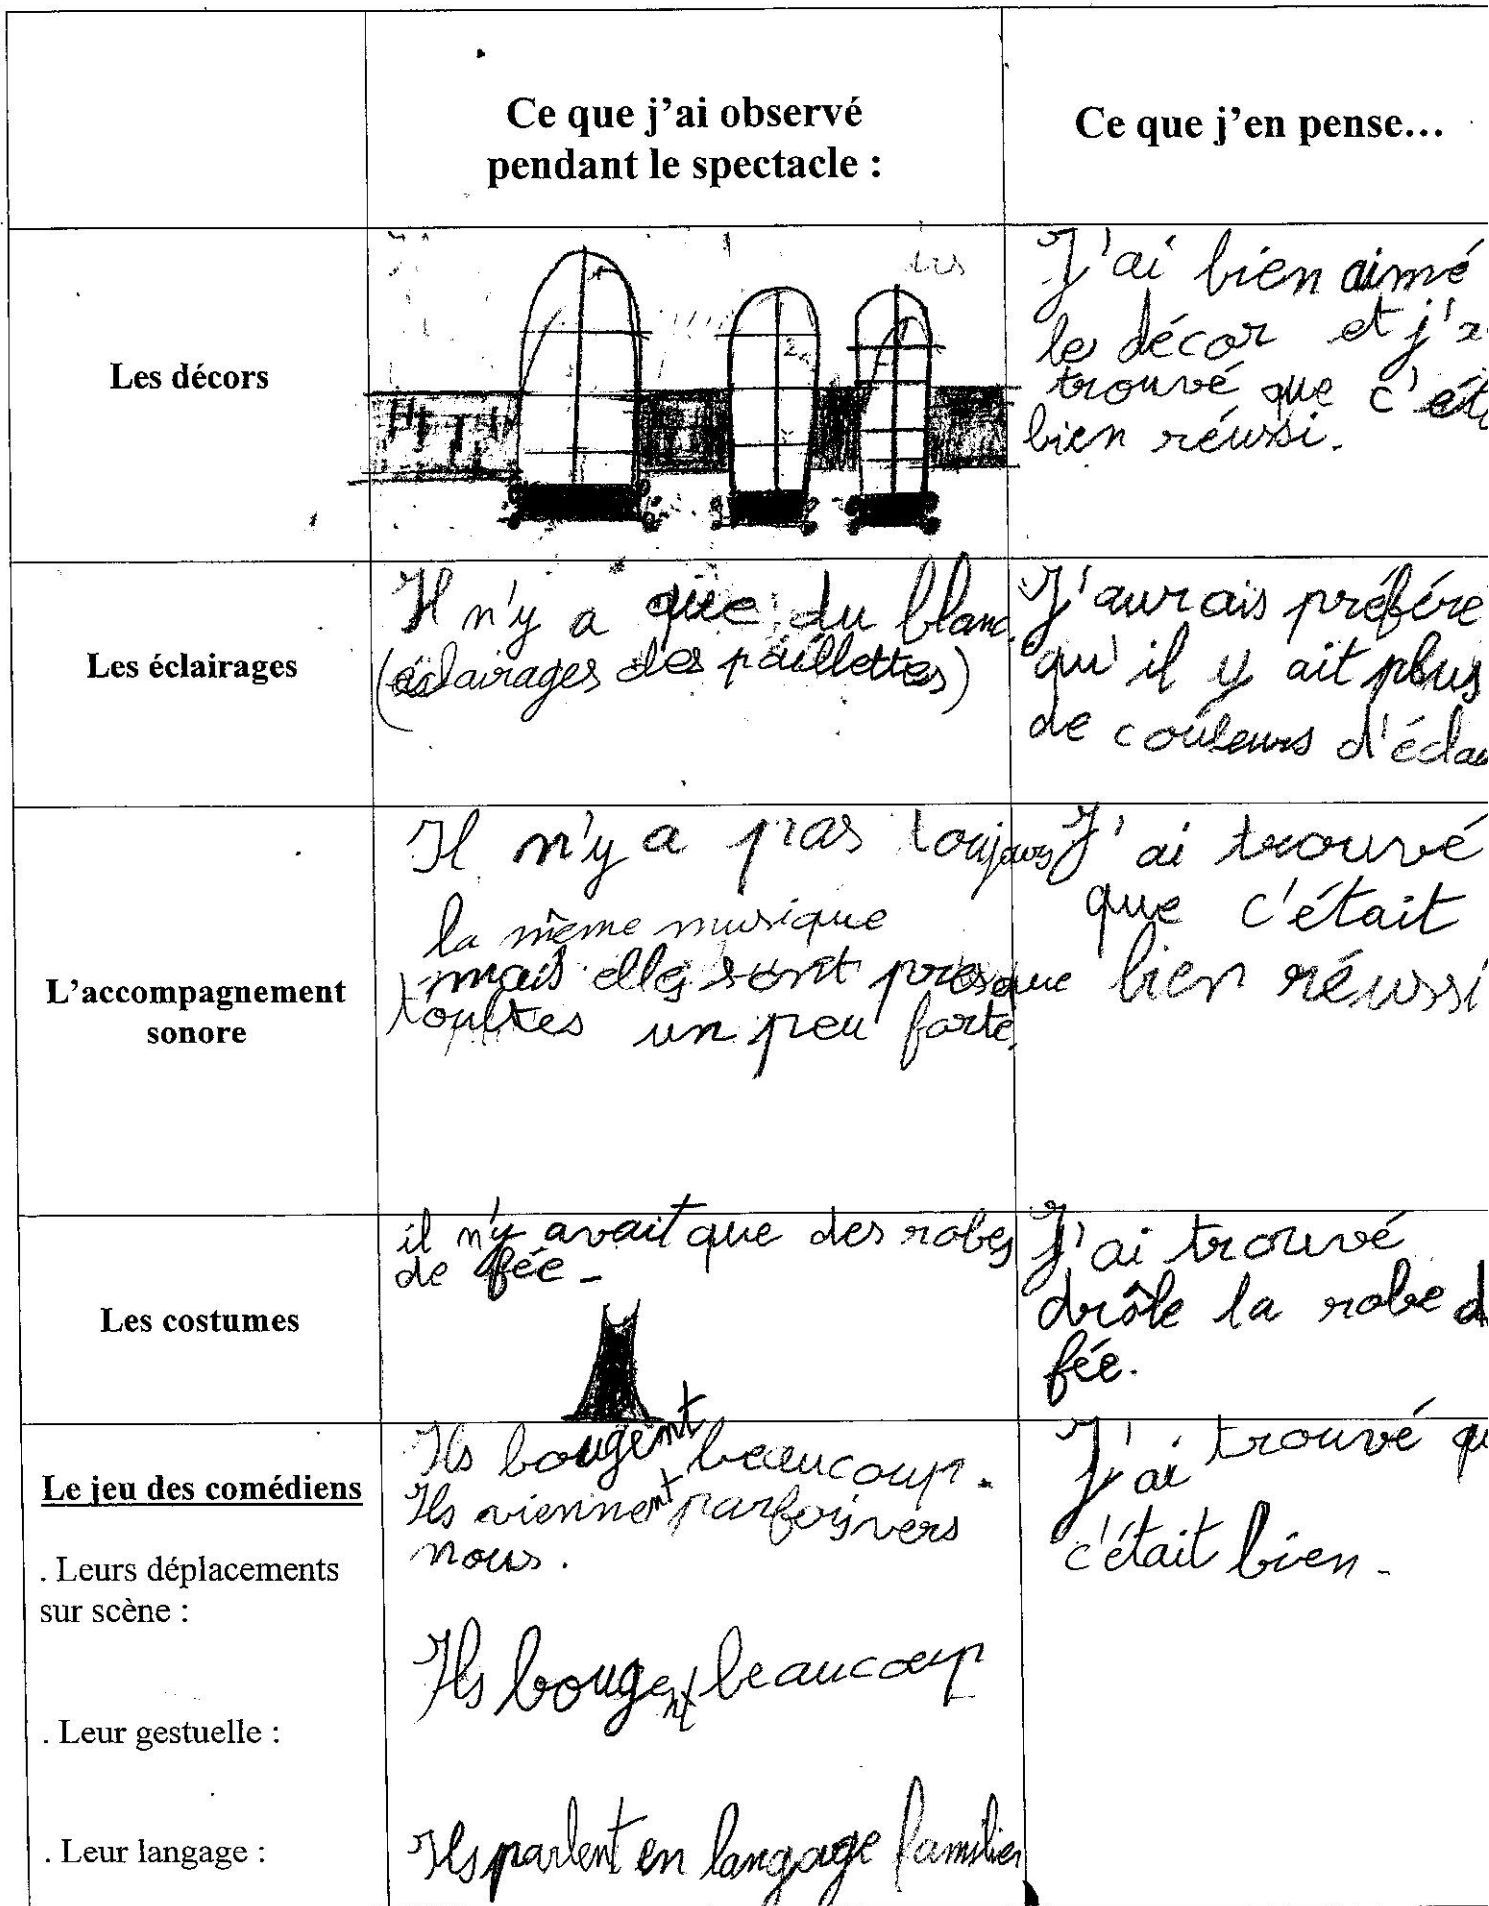 Ce que j'ai observé
pendant le spectacle :
Ce que j'en pense...
Les décors
J'ai bien aimé
le décor et j'
trouvé que c'ét
bien réussi.
Les éclairages
Il n'y a que du blanc.
(éclairages des paillettes)
J'aurais préféré
qu'il y ait plus
de couleurs d'éclai
L'accompagnement
sonore
Il n'y a pas toujours
la même musique
mais elles sont presque
toutes un peu forte.
J'ai trouvé
que c'était
bien réussi
Les costumes
il n'y avait que des robes
de fée -
J'ai trouvé
drôle la robe d
fée.
Le jeu des comédiens
. Leurs déplacements
sur scène :
Ils bougent beaucoup.
Ils viennent parfois vers
nous.
J'ai trouvé qu
c'était bien -
. Leur gestuelle :
Ils bougent beaucoup
. Leur langage :
Ils parlent en langage familier